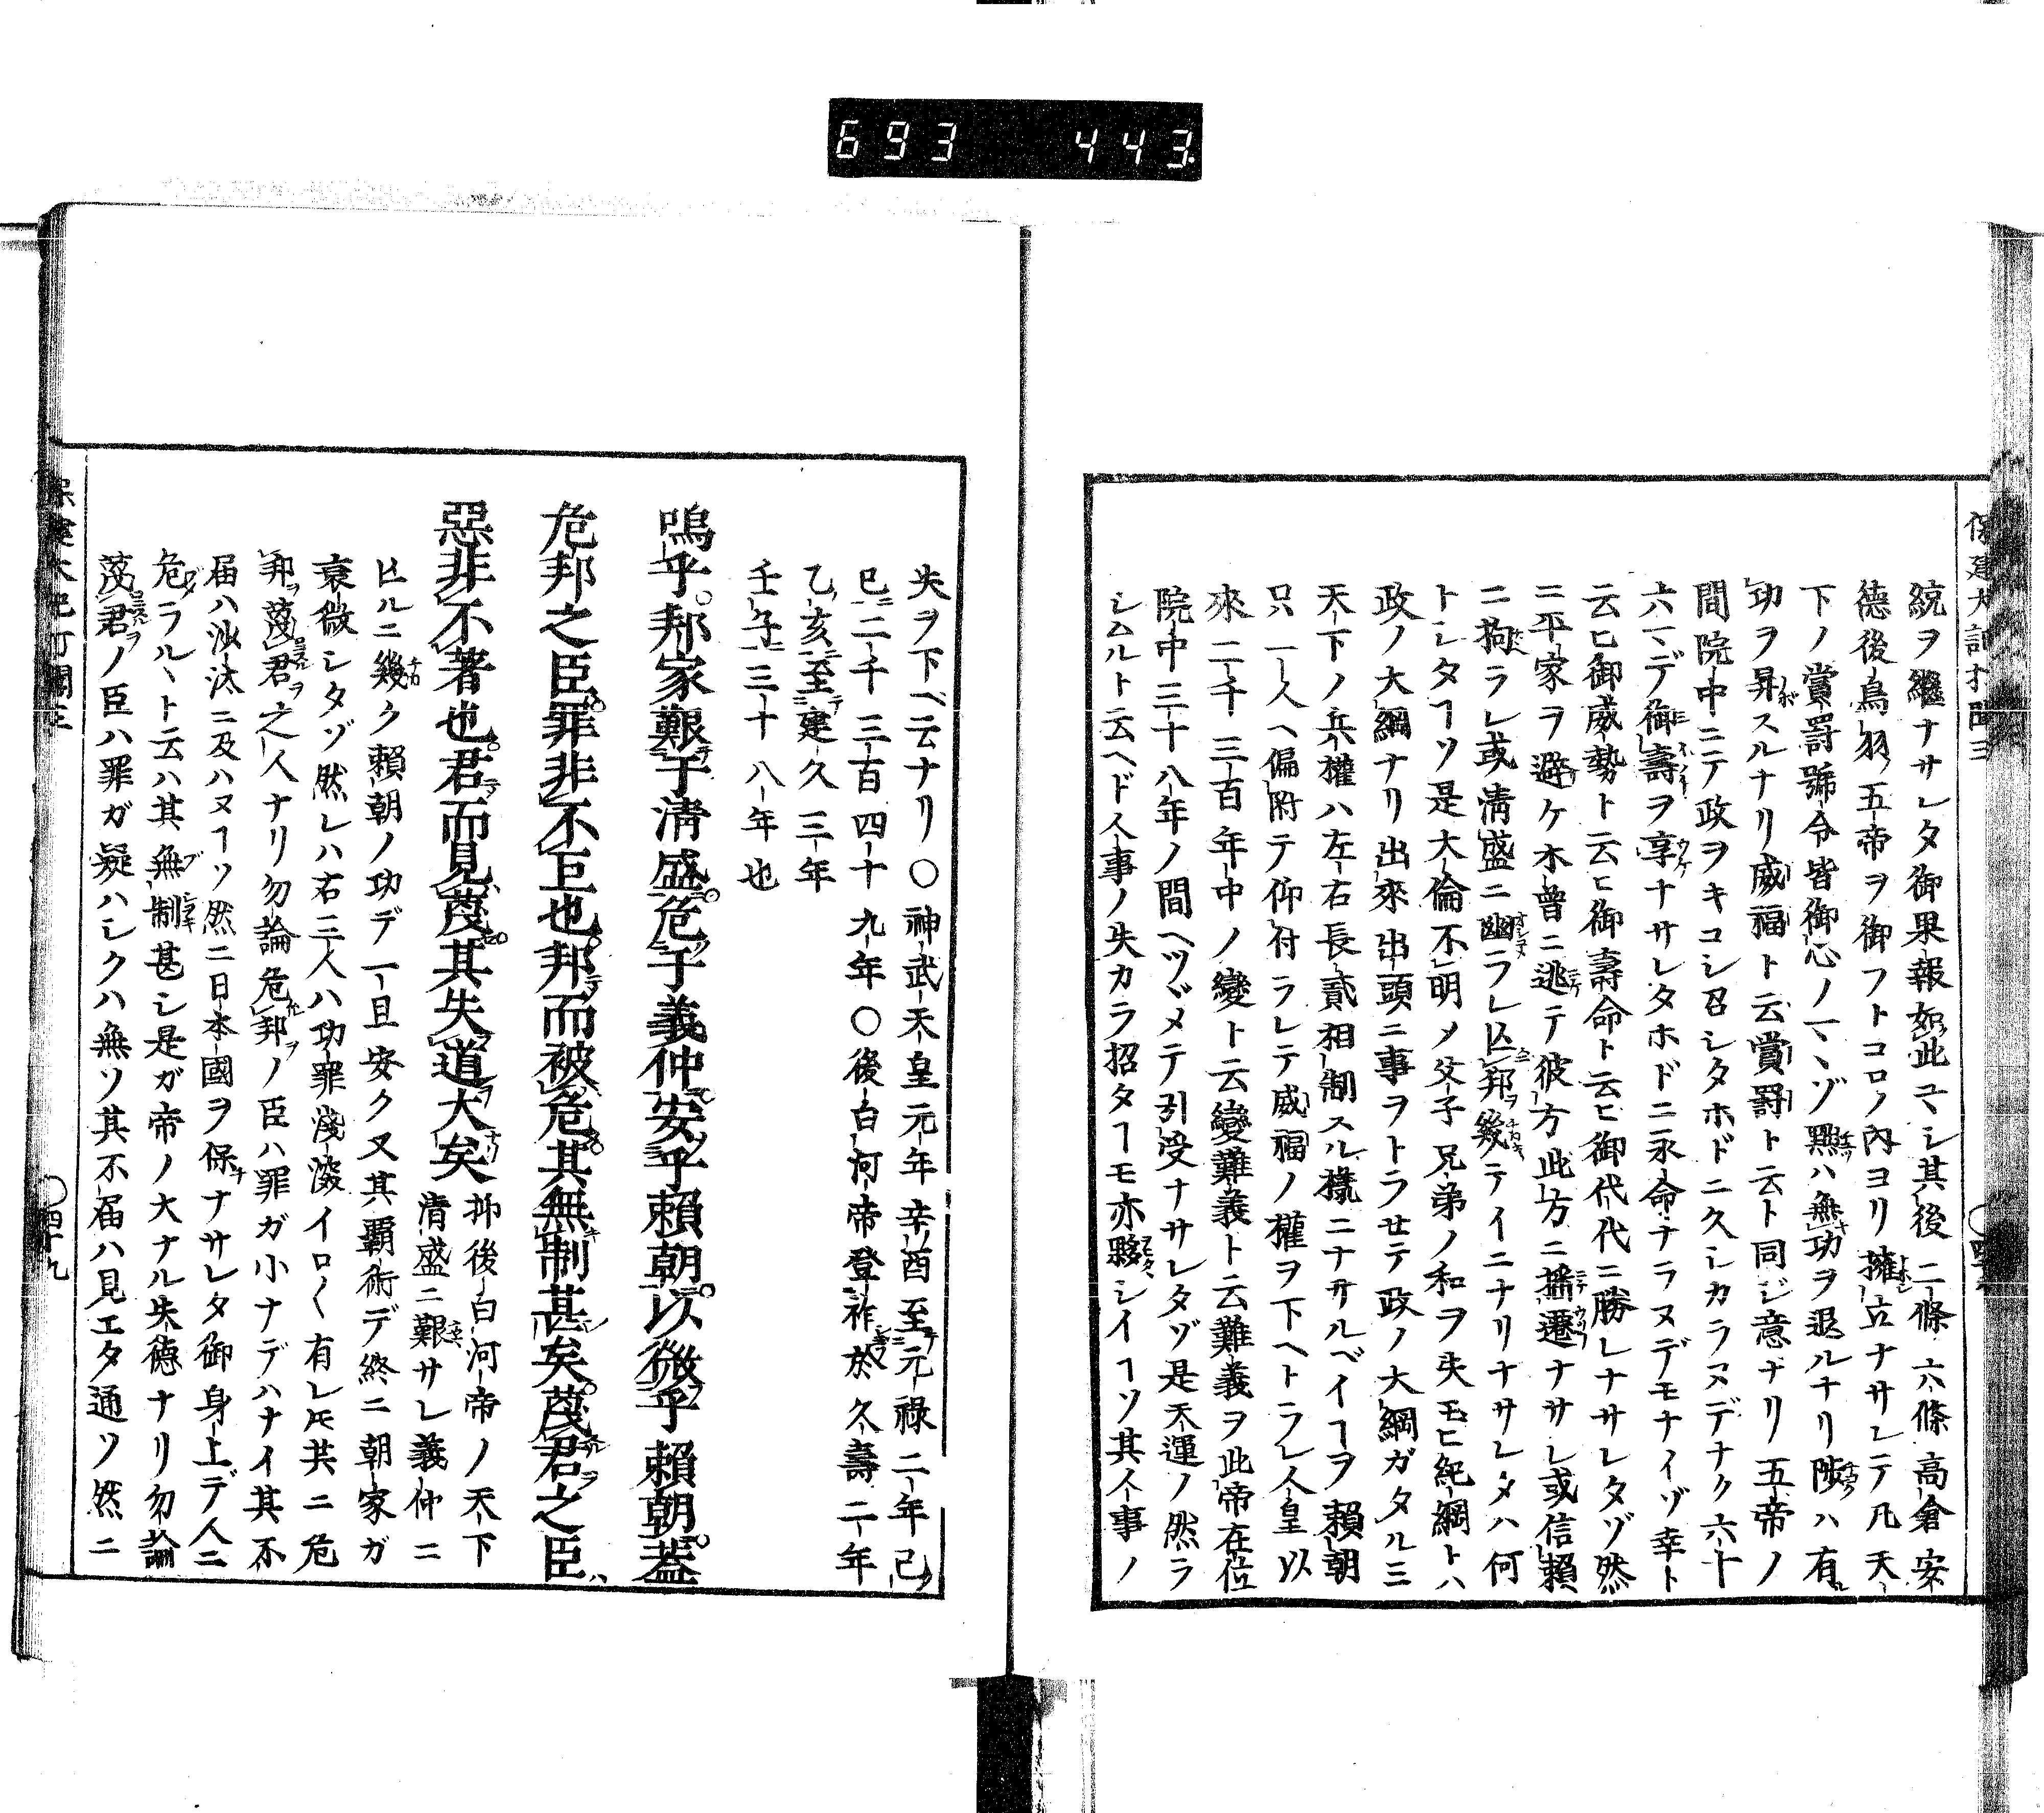 693 443
保建大記打聞三
統ヲ繼ナサレタ御果報如此コヽシ其後二條六條高倉安
德後鳥羽五帝ヲ御フトコロノ內ヨリ擁立ナサレテ凡天
下ノ賞罰號令皆御心ノマヽゾ黜ハ無功ヲ退ルナリ陟ハ有
功ヲ昇スルナリ威福ト云賞罰ト云ト同ジ意ナリ五帝ノ
間院中ニテ政ヲキコシ召シタホドニ久シカラヌデナク六十
六マデ御壽ヲ享ナサレタホドニ永命ナラヌデモナイゾ幸ト
云ヒ御威勢ト云ヒ御壽命ト云ヒ御代代ニ勝レナサレタゾ然
ニ平家ヲ避ケ木曾ニ逃テ彼方此方ニ播遷ナサレ或信賴
ニ拘ラレ或淸盛ニ幽ラレ亡邦ヲ幾テイニナリナサレタハ何
トシタヿソ是大倫不明〆父子兄弟ノ和ヲ失玉ヒ紀綱トハ
政ノ大綱ナリ出來出頭ニ事ヲトラセテ政ノ大綱ガタルミ
天下ノ兵權ハ左右長貳相制スル樣ニナサルベイヿヲ賴朝
只一人ヘ偏附テ仰付ラレテ威福ノ權ヲ下ヘトラレ人皇以
來二千三百年中ノ變ト云變難義ト云難義ヲ此帝在位
院中三十八年ノ間ヘツヾメテ引受ナサレタゾ是天運ノ然ラ
シムルト云ヘド人事ノ失カラ招タヿモ亦夥シイヿソ其人事ノ
失ヲ下ベ云ナリ○神武天皇元年辛酉至元祿二年己
巳二千三百四十九年○後白河帝登祚於久壽二年
乙亥至建久三年
壬子三十八年也
嗚乎邦家艱于淸盛危于義仲安乎賴朝以微乎賴朝蓋
危邦之臣罪非不巨也邦而被危其無制甚矣蔑君之臣
惡非不著也君而見蔑其失道大矣 抑後白河帝ノ天下
淸盛ニ艱サレ義仲ニ
亡ルニ幾ク賴朝ノ功デ一旦安ク又其覇術デ終ニ朝家ガ
衰微シタゾ然レハ右三人ハ功罪淺深イロ〱有レ𪜈共ニ危
邦ヲ蔑君ヲ之人ナリ勿論危邦ヲノ臣ハ罪ガ小ナデハナイ其不
届ハ沙汰ニ及ハヌヿソ然ニ日本國ヲ保ナサレタ御身上デ人ニ
危ラルヽト云ハ其無制甚シ是ガ帝ノ大ナル失德ナリ勿論
蔑君ヲノ臣ハ罪ガ疑ハシクハ無ソ其不届ハ見エタ通ソ然ニ
○四十九